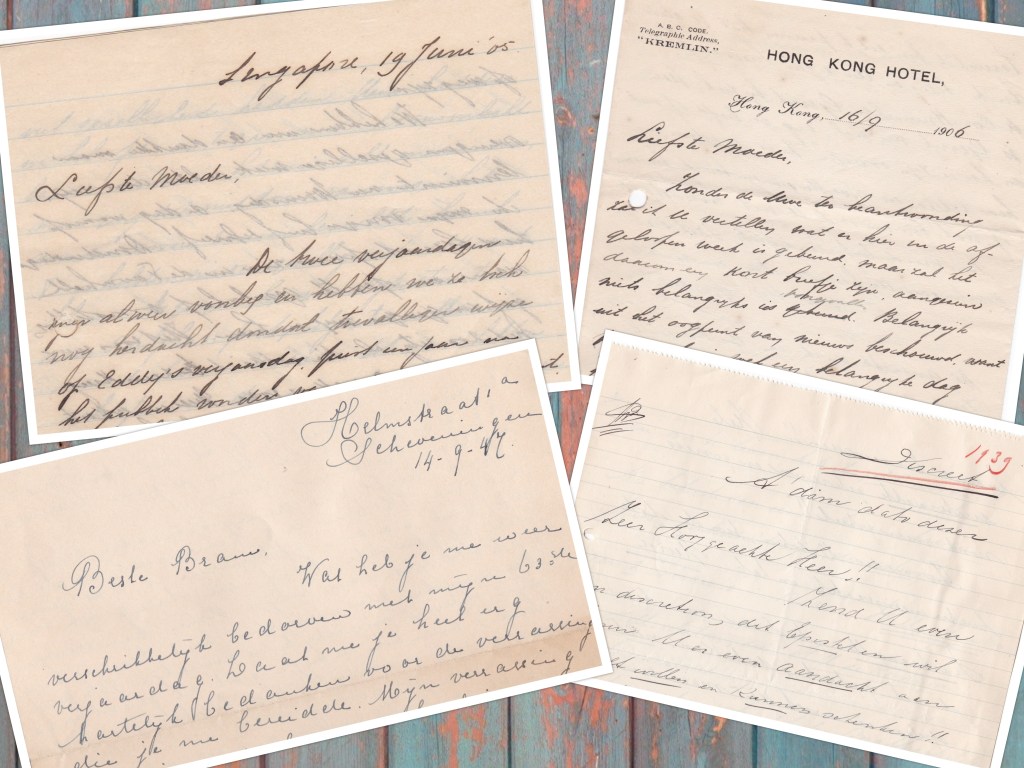 Singapore, 19 Juni '05
Liefste Moeder,
De twee verjaardagen
zijn alweer voorbij en hebben we ze toch
nog herdacht doordat toevalligerwijze
of Eddy's verjaardag juist een jaar
het publiek
A. B. C. CODE.
Telegraphic Address,
"KREMLIN."
HONG KONG HOTEL,
Hong Kong, 16/9 1906
Liefste Moeder,
Zonder de Uwe te beantwoorden
zal ik U vertellen wat er hier in de af-
geloopen week is gebeurd, maar zal dit
daarom een kort briefje zijn, aangezien
niets belangrijks is gebeurd. Belangrijk
uit het oogpunt van nieuws beschouwd, want
een belangrijke dag
Helmstraat 1a
Scheveningen
14-9-47.
Beste Bram,
Wat heb je me weer
verschrikkelijk bedorven met mijn 63ste
verjaardag. Laat me je heel erg
hartelijk bedanken voor de verrassing
die je me bereidde. Mijn verrassing
1939
Discreet
A'dam dato dezer
Zeer Hooggeachte Heer!!
Zend U even
discretion, dit epistel en wil
U er even aandacht aan
willen en kunnen schenken!!